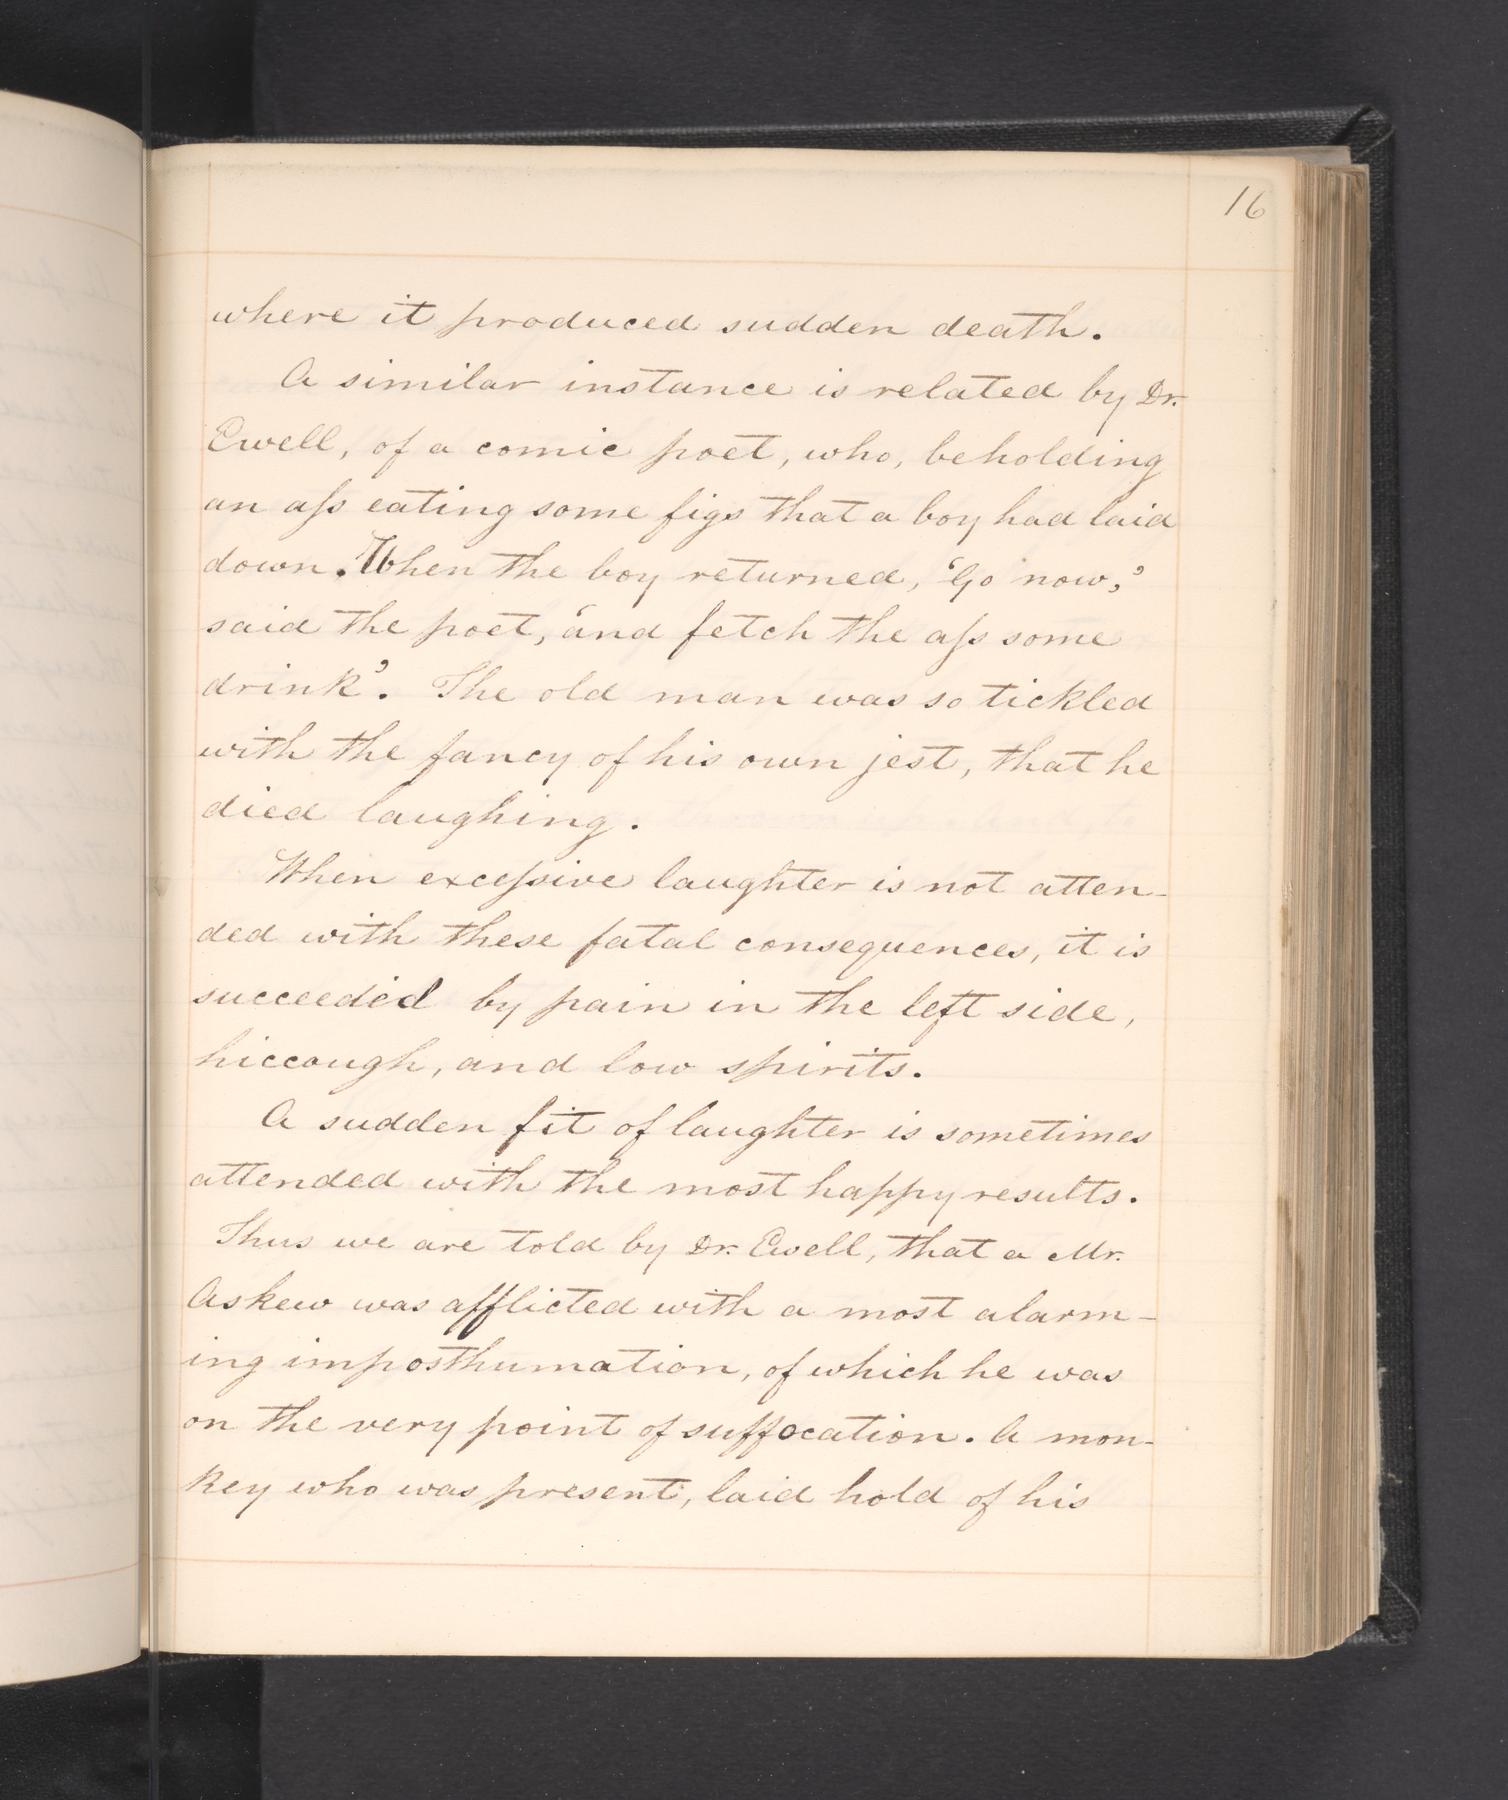 16
where it produced sudden death.
A similar instance is related by Dr.
Ewell, of a comic poet, who, beholding
an aſs eating some figs that a boy had laid
down. When the boy returned, ‘Go now,’
said the poet, ‘and fetch the aſs some
drink’. The old man was so tickled
with the fancy of his own jest, that he
died laughing.
When exceſsive laughter is not atten-
ded with these fatal consequences, it is
succeeded by pain in the left side,
hiccough, and low spirits.
A sudden fit of laughter is sometimes
attended with the most happy results.
Thus we are told by Dr. Ewell, that a Mr.
Askew was afflicted with a most alarm-
ing imposthumation, of which he was
on the very point of suffocation. A mon-
key who was present, laid hold of his